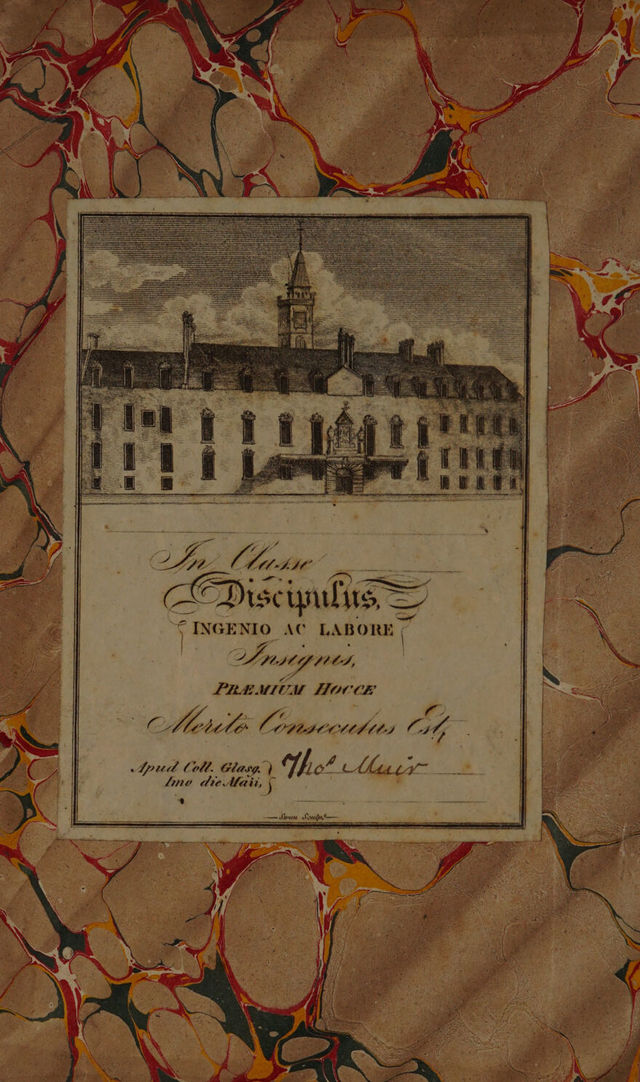 In Classe
Discipulus,
INGENIO AC LABORE
Insignis,
PRÆMIUM HOCCE
Merito Consecutus Est,
Apud Coll. Glasg. } Thos Muir
Imo die Maii,
Swan Sculpt.